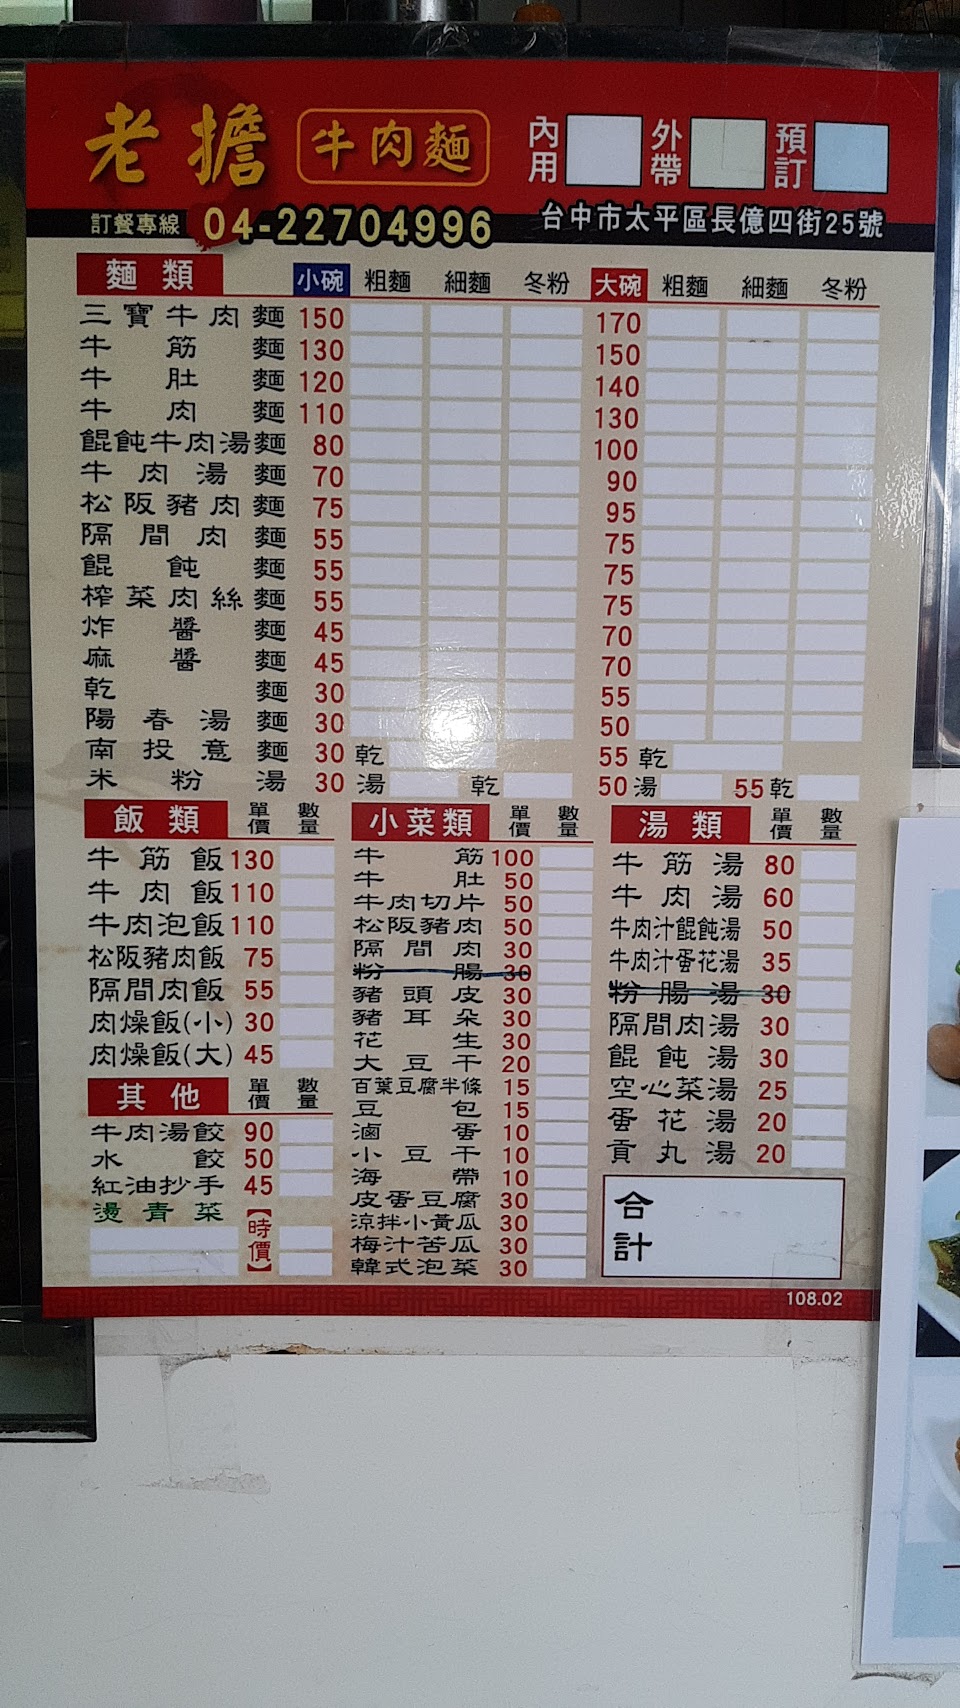 老擔 牛肉麵 內用 外帶 預訂
訂餐專線 04-22704996 台中市太平區長億四街25號
麵類 小碗 粗麵 細麵 冬粉 大碗 粗麵 細麵 冬粉
三寶牛肉麵 150 170
牛筋麵 130 150
牛肚麵 120 140
牛肉麵 110 130
餛飩牛肉湯麵 80 100
牛肉湯麵 70 90
松阪豬肉麵 75 95
隔間肉麵 55 75
餛飩麵 55 75
榨菜肉絲麵 55 75
炸醬麵 45 70
麻醬麵 45 70
乾麵 30 55
陽春湯麵 30 50
南投意麵 30 乾 55 乾
米粉湯 30 湯 乾 50 湯 55 乾
飯類 單價 數量
牛筋飯 130
牛肉飯 110
牛肉泡飯 110
松阪豬肉飯 75
隔間肉飯 55
肉燥飯(小) 30
肉燥飯(大) 45
其他 單價 數量
牛肉湯餃 90
水餃 50
紅油抄手 45
燙青菜【時價】
小菜類 單價 數量
牛筋 100
牛肚 50
牛肉切片 50
松阪豬肉 50
隔間肉 30
粉腸 30
豬頭皮 30
豬耳朵 30
花生 30
大豆干 20
百葉豆腐半條 15
豆包 15
滷蛋 10
小豆干 10
海帶 10
皮蛋豆腐 30
涼拌小黃瓜 30
梅汁苦瓜 30
韓式泡菜 30
湯類 單價 數量
牛筋湯 80
牛肉湯 60
牛肉汁餛飩湯 50
牛肉汁蛋花湯 35
粉腸湯 30
隔間肉湯 30
餛飩湯 30
空心菜湯 25
蛋花湯 20
貢丸湯 20
合計
108.02